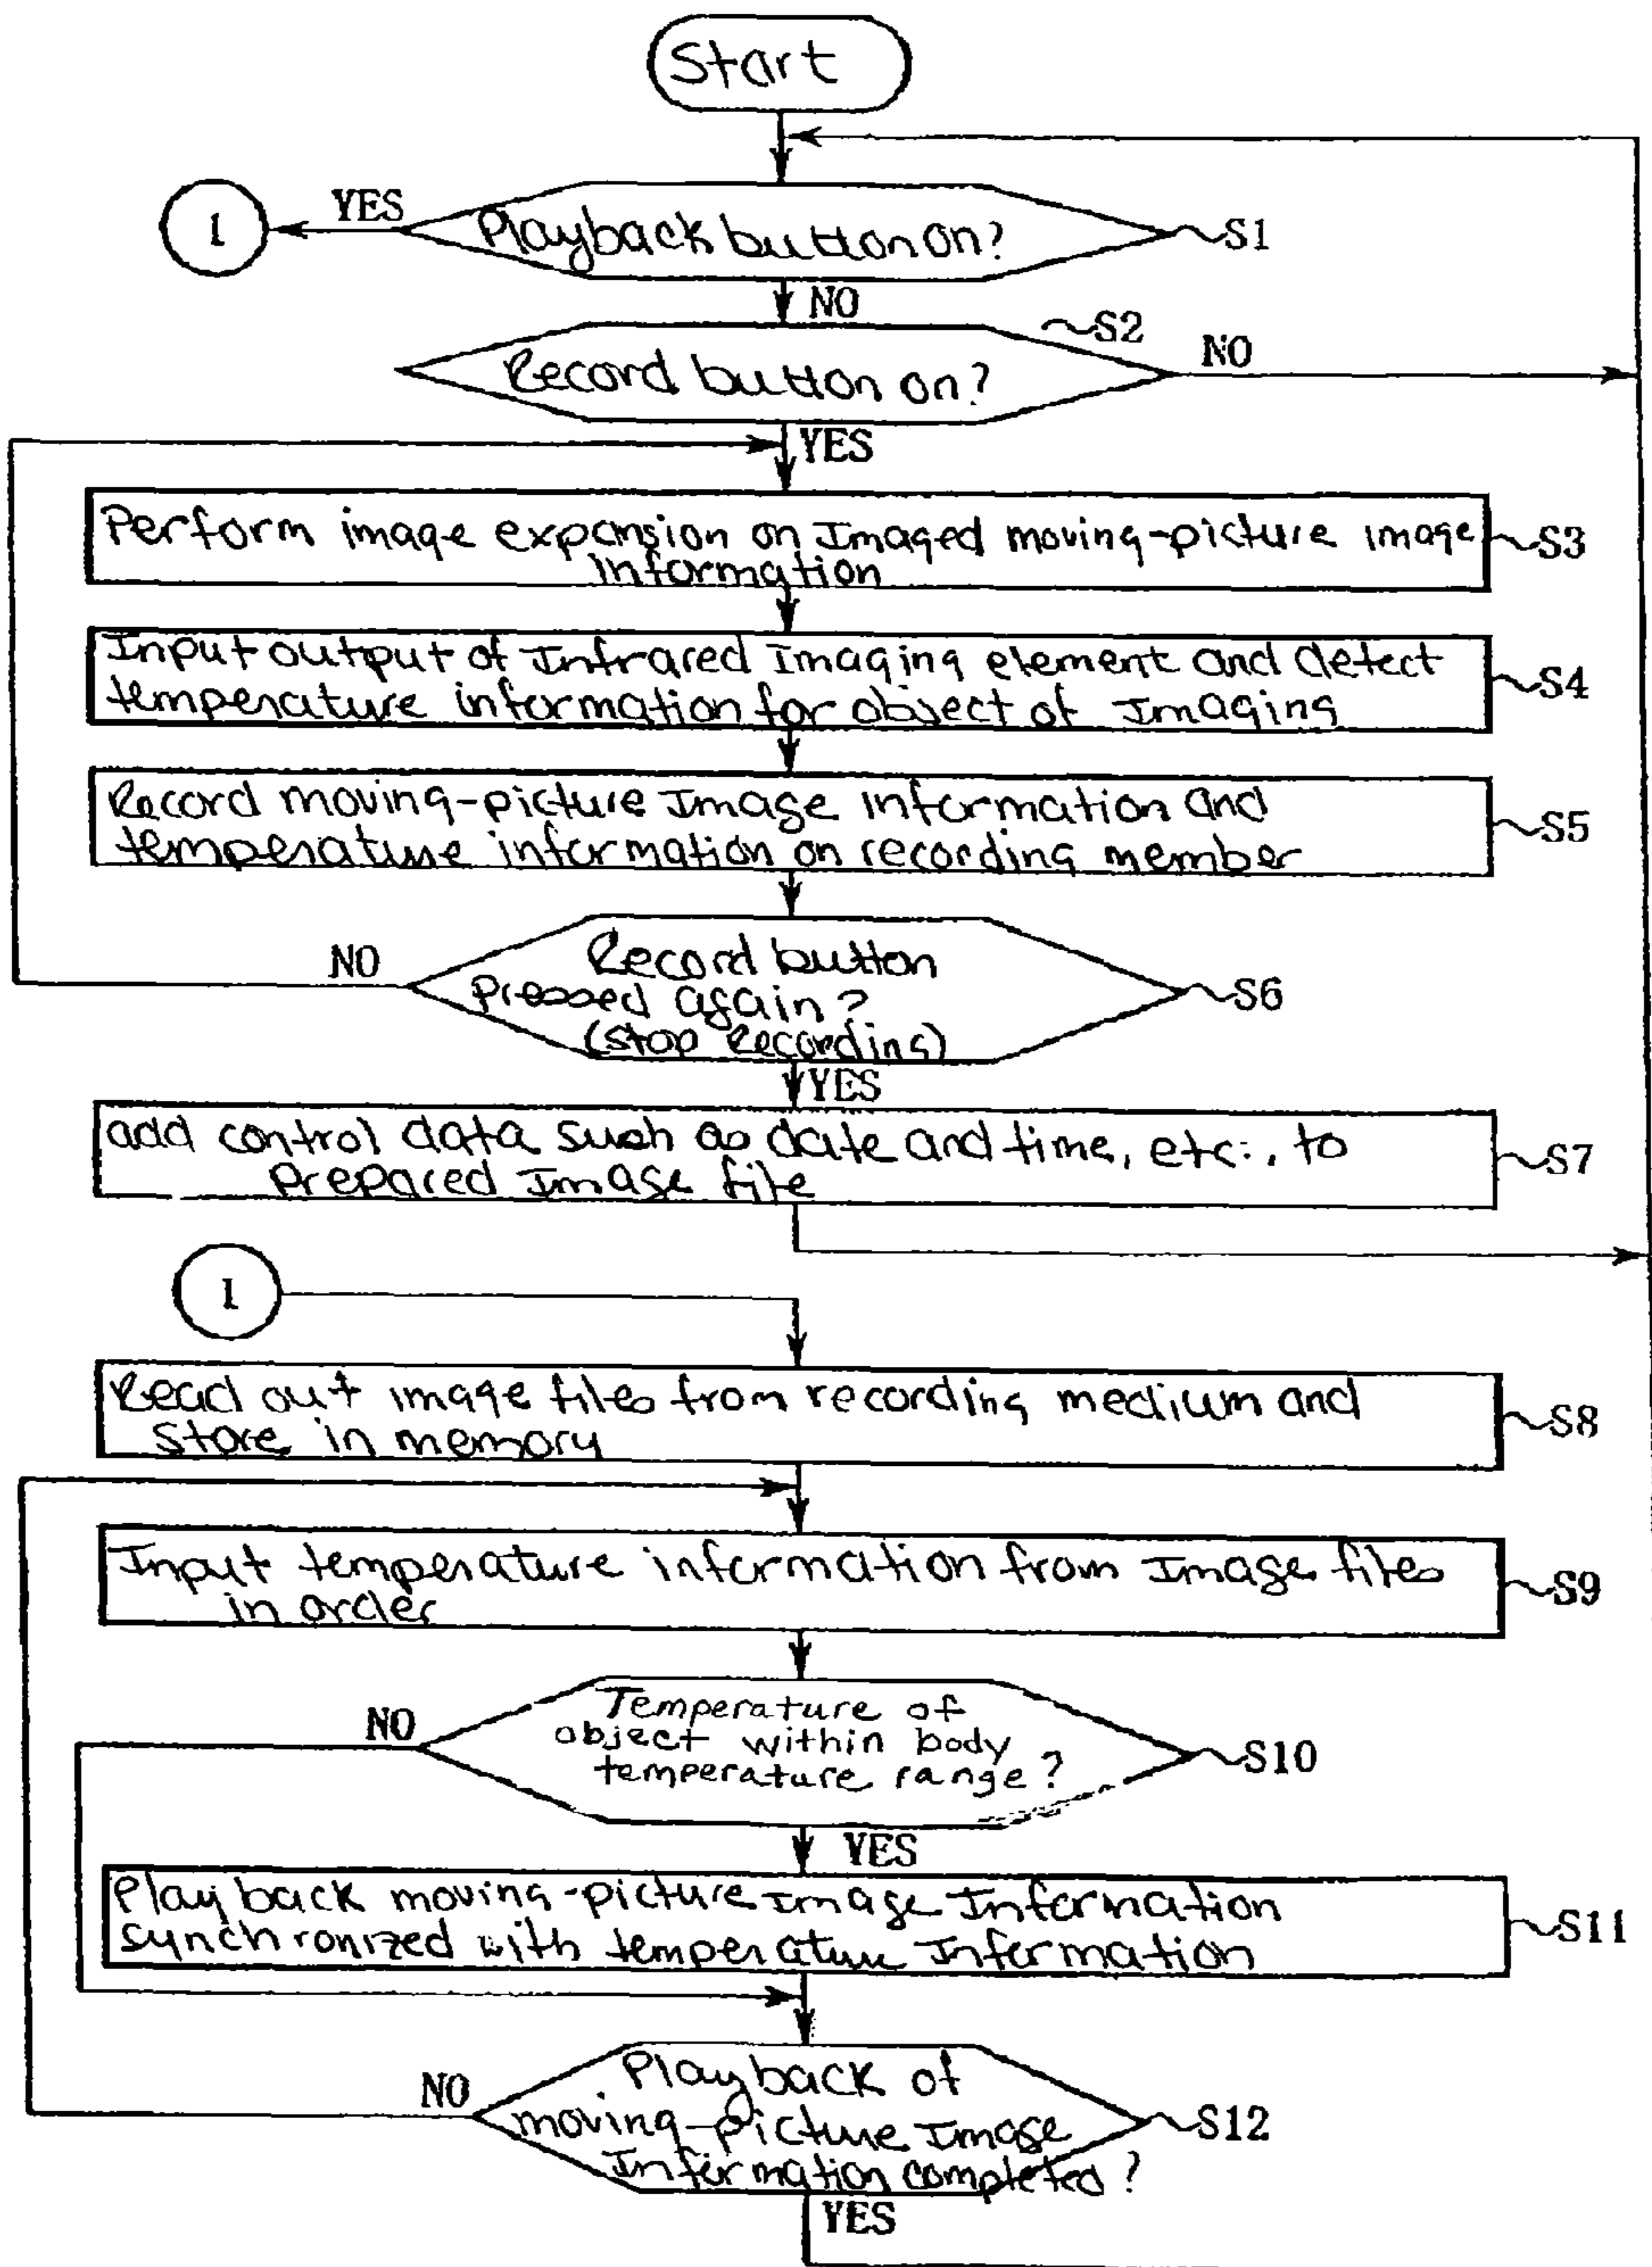 Start
1
YES
Playback button on?
S1
NO
S2
Record button on?
NO
YES
Perform image expansion on Imaged moving-picture image
Information
S3
Input output of Infrared Imaging element and detect
temperature information for object of Imaging
S4
Record moving-picture Image information and
temperature information on recording member
S5
NO
Record button
Pressed again?
(Stop Recording)
S6
YES
add control data such as date and time, etc., to
Prepared Image file
S7
1
Read out image files from recording medium and
store in memory
S8
Input temperature information from Image files
in order
S9
NO
Temperature of
object within body
temperature range?
S10
YES
Playback moving-picture Image Information
synchronized with temperature Information
S11
NO
Playback of
moving-picture Image
Information completed?
S12
YES